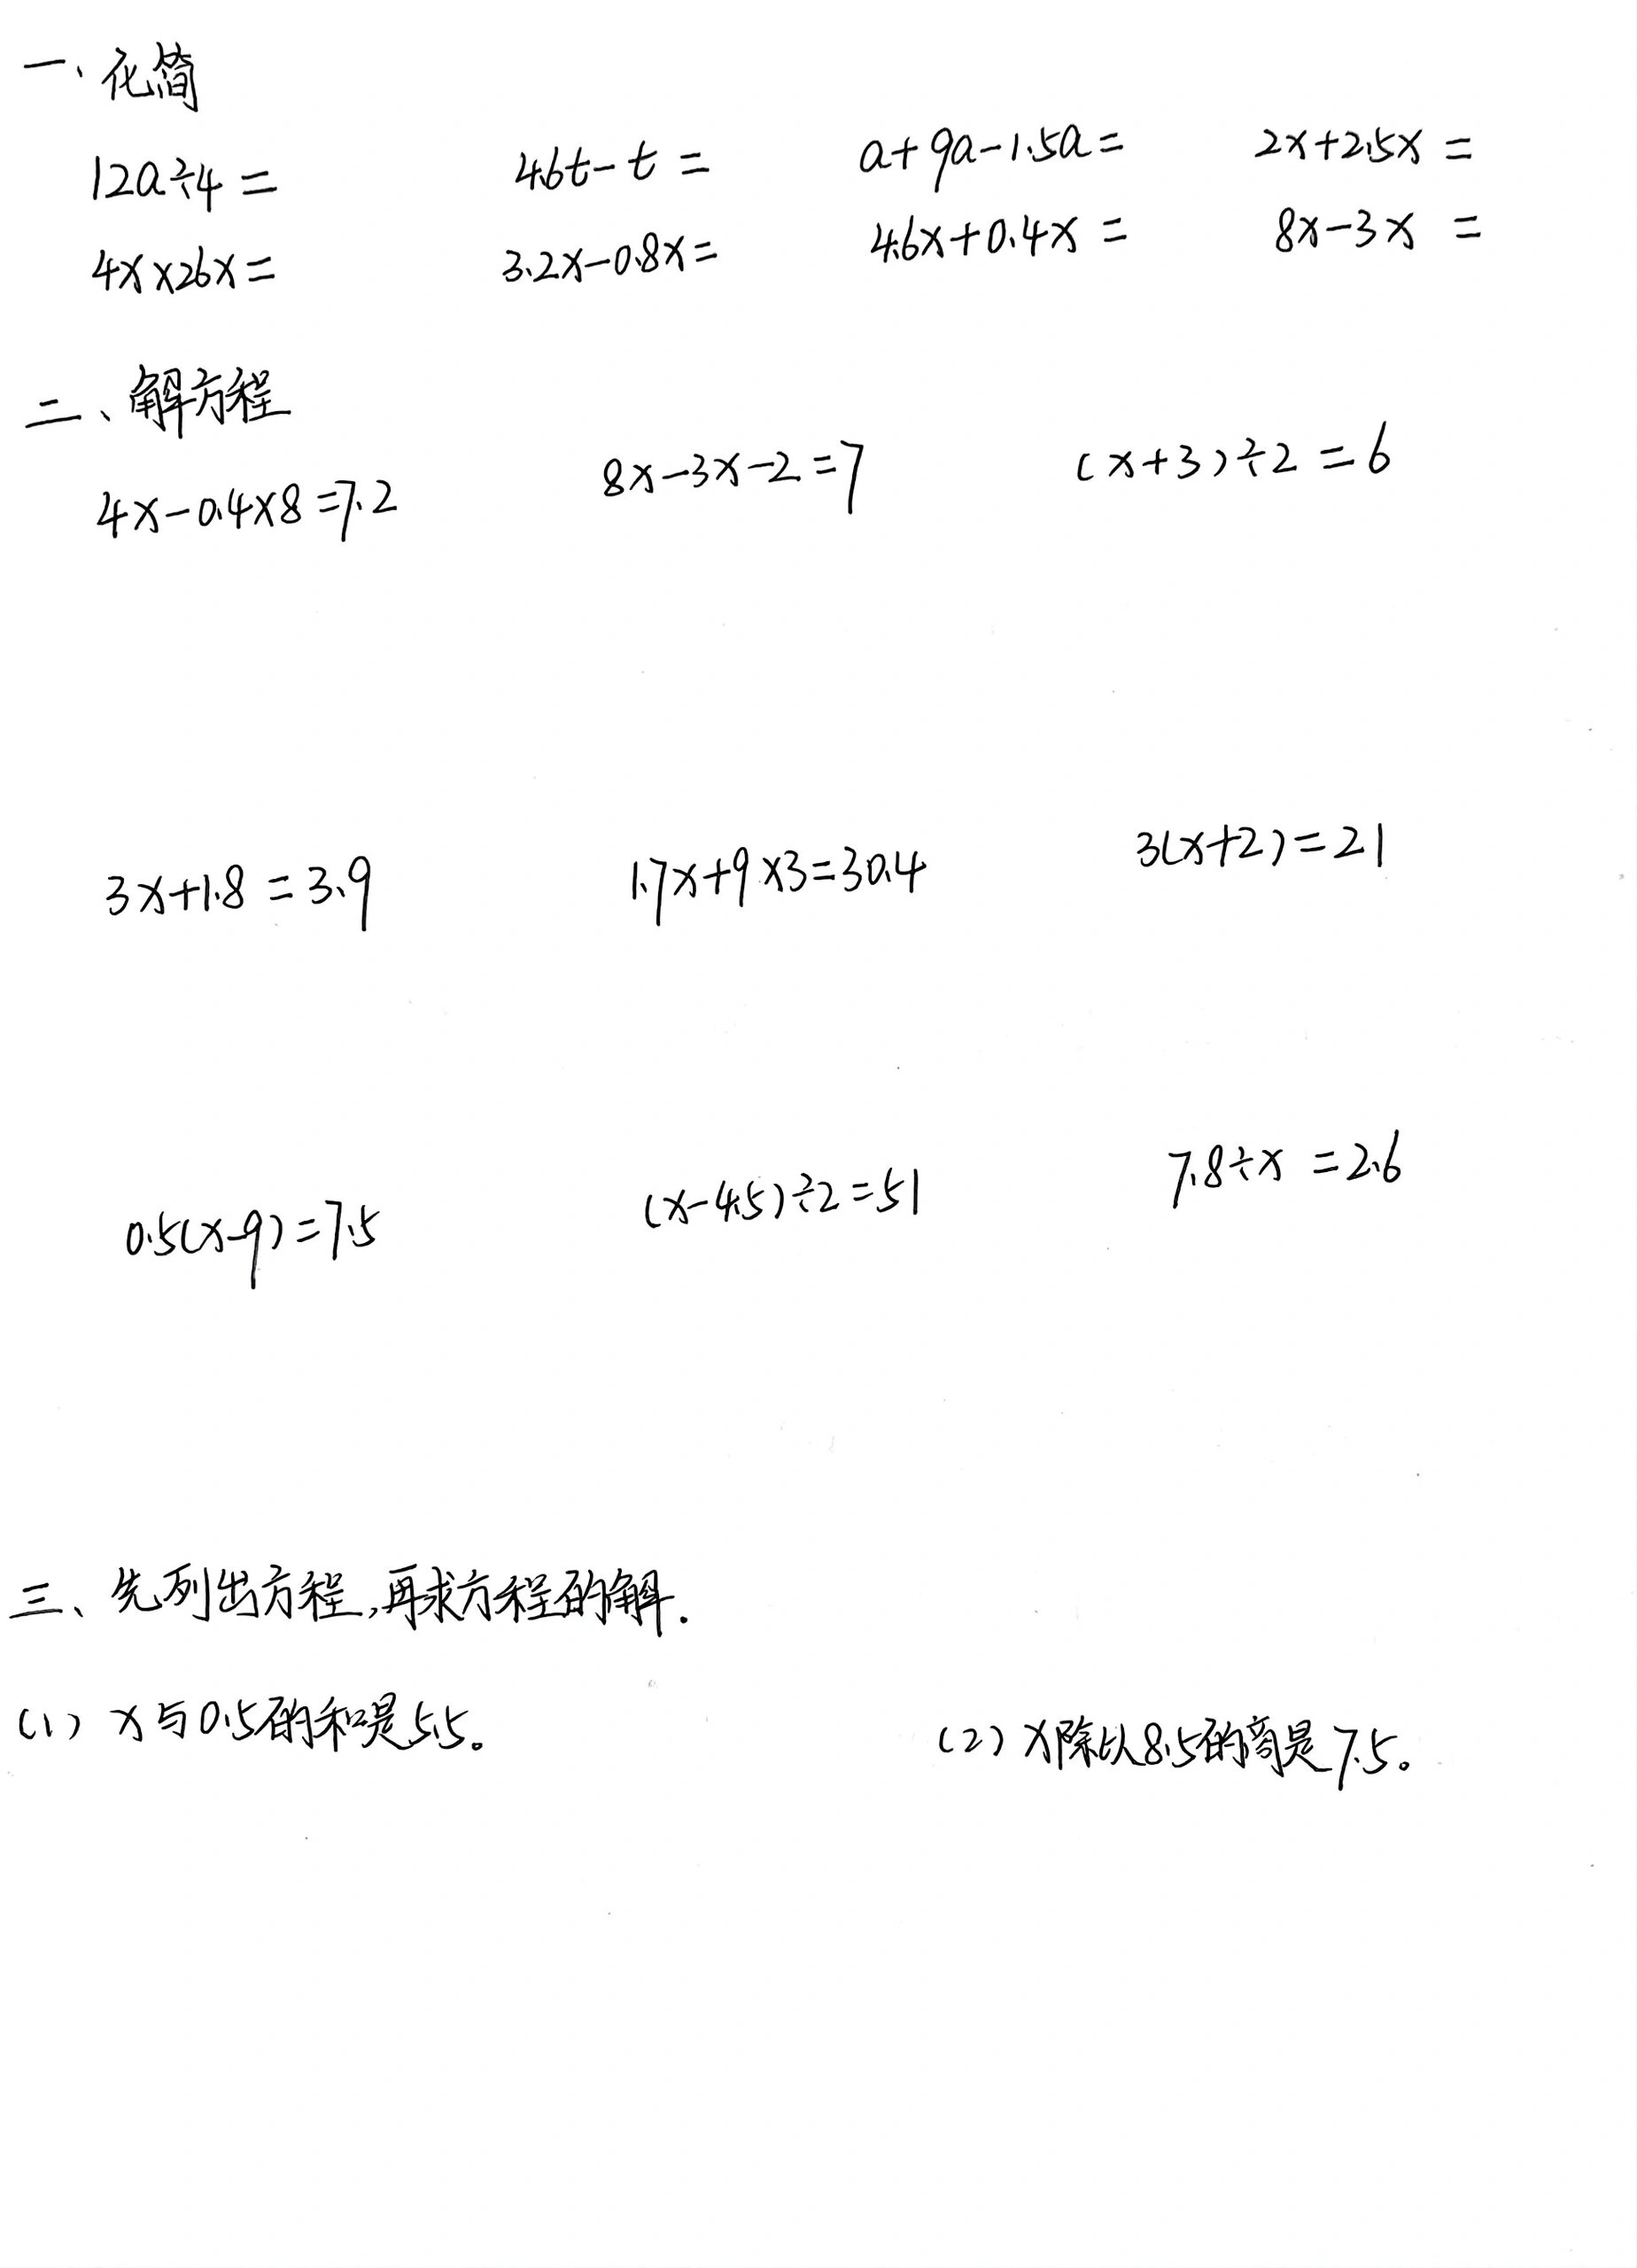 一、化简
12a÷4= 4.6t-t= a+9a-1.5a= 2x+2.5x=
4x×26x= 3.2x-0.8x= 4.6x+0.4x= 8x-3x=
二、解方程
4x-0.4×8=7.2 8x-3x-2=7 (x+3)÷2=6
3x+1.8=3.9 1.7x+9×3=30.4 3(x+2)=21
0.5(x-9)=7.5 (x-4.5)÷2=51 7.8÷x=2.6
三、先列出方程,再求方程的解.
(1) x与0.5的和是5.5。 (2) x除以8.5的商是7.5。